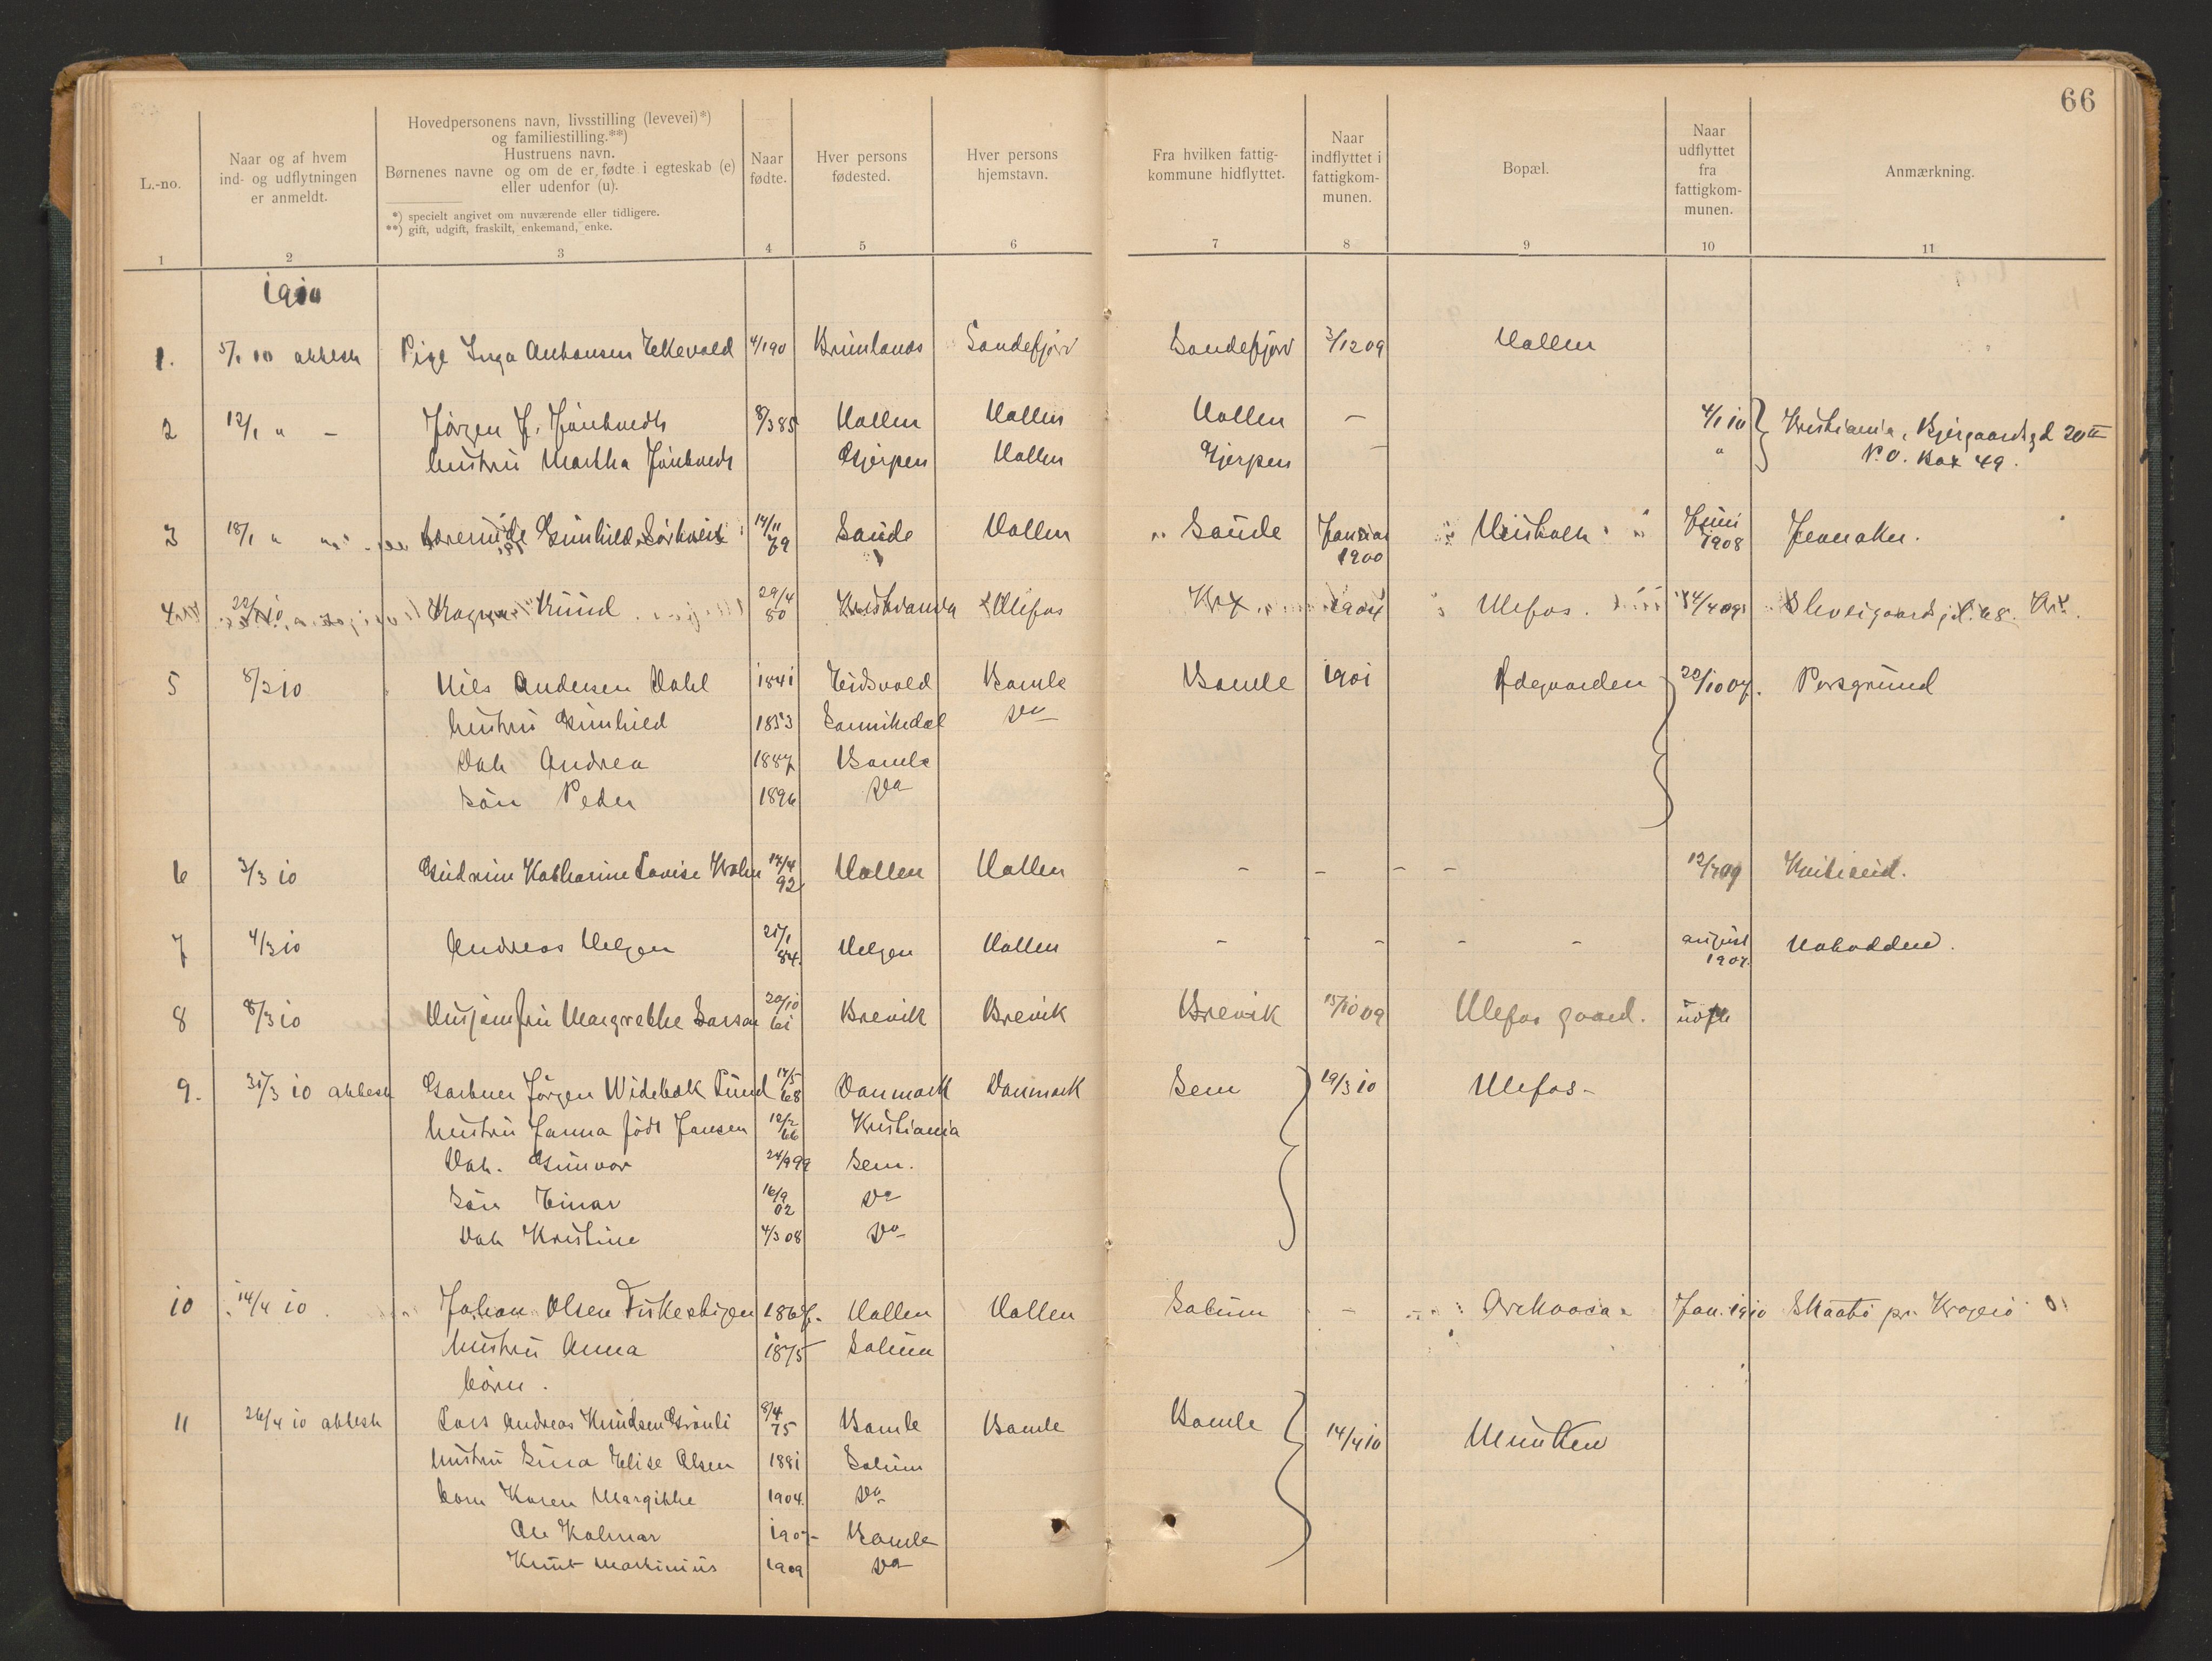 66
L.-no.
Naar og af hvem
ind- og udflytningen
er anmeldt.
Hovedpersonens navn, livsstilling (levevei)*)
og familiestilling.**)
Hustruens navn.
Børnenes navne og om de er fødte i egteskab (e)
eller udenfor (u).
*) specielt angivet om nuværende eller tidligere.
**) gift, udgift, fraskilt, enkemand, enke.
Naar
fødte.
Hver persons
fødested.
Hver persons
hjemstavn.
Fra hvilken fattig-
kommune hidflyttet.
Naar
indflyttet i
fattigkom-
munen.
Bopæl.
Naar
udflyttet
fra
fattigkom-
munen.
Anmærkning.
1 2 3 4 5 6 7 8 9 10 11
1910
1. 5/1 10 attest Pige Inga Antonsen Ekevald 4/1 90 Brunlanes Sandefjord Sandefjord 3/12 09 Hollen
2 12/1 " - Jørgen J. Jöntvedt 8/3 85 Hollen Hollen Hollen - 4/1 10 Kristiania, Bjergaardsgd 20 III
hustru Martha Jöntvedt Gjerpen Hollen Gjerpen - " P.O. Box 49.
3 18/1 " Gunhild 14/11 79 Saude Hollen Saude Januar 1900 Juni 1908 Jevnaker.
4 22/1 10 Ragna Knud 29/4 80 Ulefos Kr. 1904 Ulefos. 09 Schveigaardsgd. 68. Kr.
5 8/2 10 Nils Andersen Dahl 1841 Eidsvold Bamle Bamle 1901 Ødegaarden 20/10 07. Porsgrund
hustru Gunhild 1853 Sannikedal do
Dat Andrea 1887 Bamle
Sön Peder 1896 do
6 3/3 10 Gudrun Katharine Lovise Holm 14/4 92 Hollen Hollen - - - - 12/7 09 Kviteseid.
7 4/3 10 Andreas Helgen 21/1 84. Helgen Hollen - - - - - august 1907. Notodden.
8 8/3 10 Husjomfru Margrethe Larsen 20/10 61 Brevik Brevik Brevik 15/10 09 Ulefos gaard. udfl
9. 31/3 10 attest Gartner Jörgen Widebæk Lund 14/5 68 Danmark Danmark Sem 19/3 10 Ulefos -
hustru Janna födt Jansen 12/2 66 Kristiania
Dat. Gunvor 24/9 99 Sem.
Sön Einar 16/9 02 do
Dat Kristine 4/3 08 do
10 14/4 10 Johan Olsen Fiskestigen 1867. Hollen Hollen Solum - Jan. 1910 Skaatö pr. Kragerö
hustru Anna 1875 Solum
börn.
11 26/4 10 attest Lars Andreas Knudsen Grönli 8/4 75 Bamle Bamle Bamle 14/4 10
hustru Sina Elise Olsen 1881 Solum
barn Karen Margithe 1904. do
Ole Kolmar 1907 Bamle
Knut Martinius 1909 do